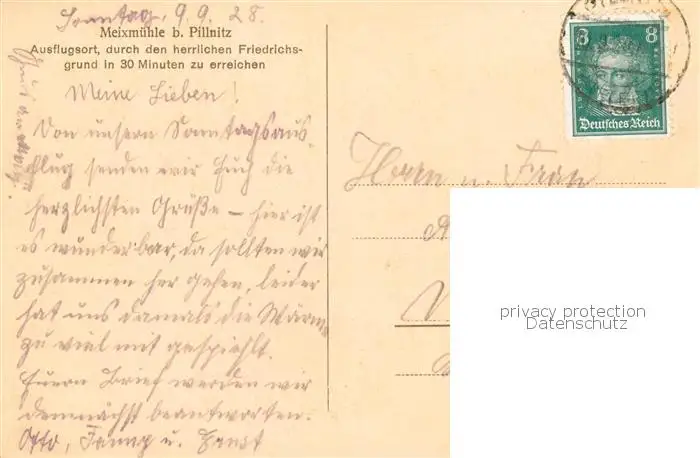 Sonntag, 9.9.28.
Meixmühle b. Pillnitz
Ausflugsort, durch den herrlichen Friedrichs-
grund in 30 Minuten zu erreichen
Meine Lieben!
Von unserm Sonntagsaus-
flug senden wir Euch die
herzlichsten Grüße – hier ist
es wunderbar, da sollten wir
zusammen her gehen, leider
hat uns damals die Wärme
zu viel mit gespielt.
Euern Brief werden wir
demnächst beantworten.
Otto, Fanny u. Horst
8 8
Deutsches Reich
Herrn u. Frau
privacy protection
Datenschutz